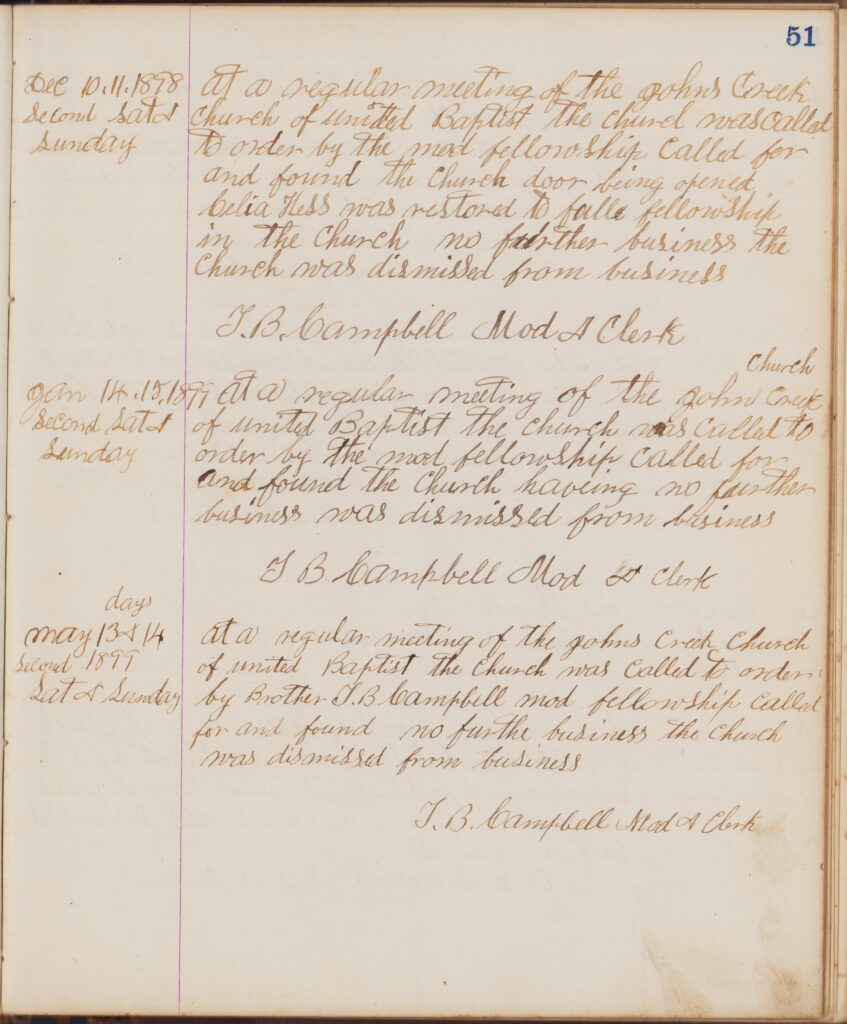 51
Dec 10.11.1898
Second Sat &
Sunday
At a regular meeting of the johns Creek
Church of united Baptist the Church was called
to order by the mod fellowship called for
and found the Church door being opened
Celia Hess was restored to fulle fellowship
in the Church no further business the
Church was dismissed from business
T. B. Campbell Mod & Clerk
Jan 14.15.1899
Second Sat &
Sunday
Church
At a regular meeting of the john Creek
of united Baptist the Church was called to
order by the mod fellowship called for
and found the Church haveing no further
business was dismissed from business
T B. Campbell Mod & Clerk
days
may 13 & 14
Second 1899
Sat & Sunday
at a regular meeting of the johns Creek Church
of united Baptist the Church was called to order
by Brother T. B Campbell mod fellowship called
for and found no furthe business the Church
was dismissed from business
T. B. Campbell Mod & Clerk